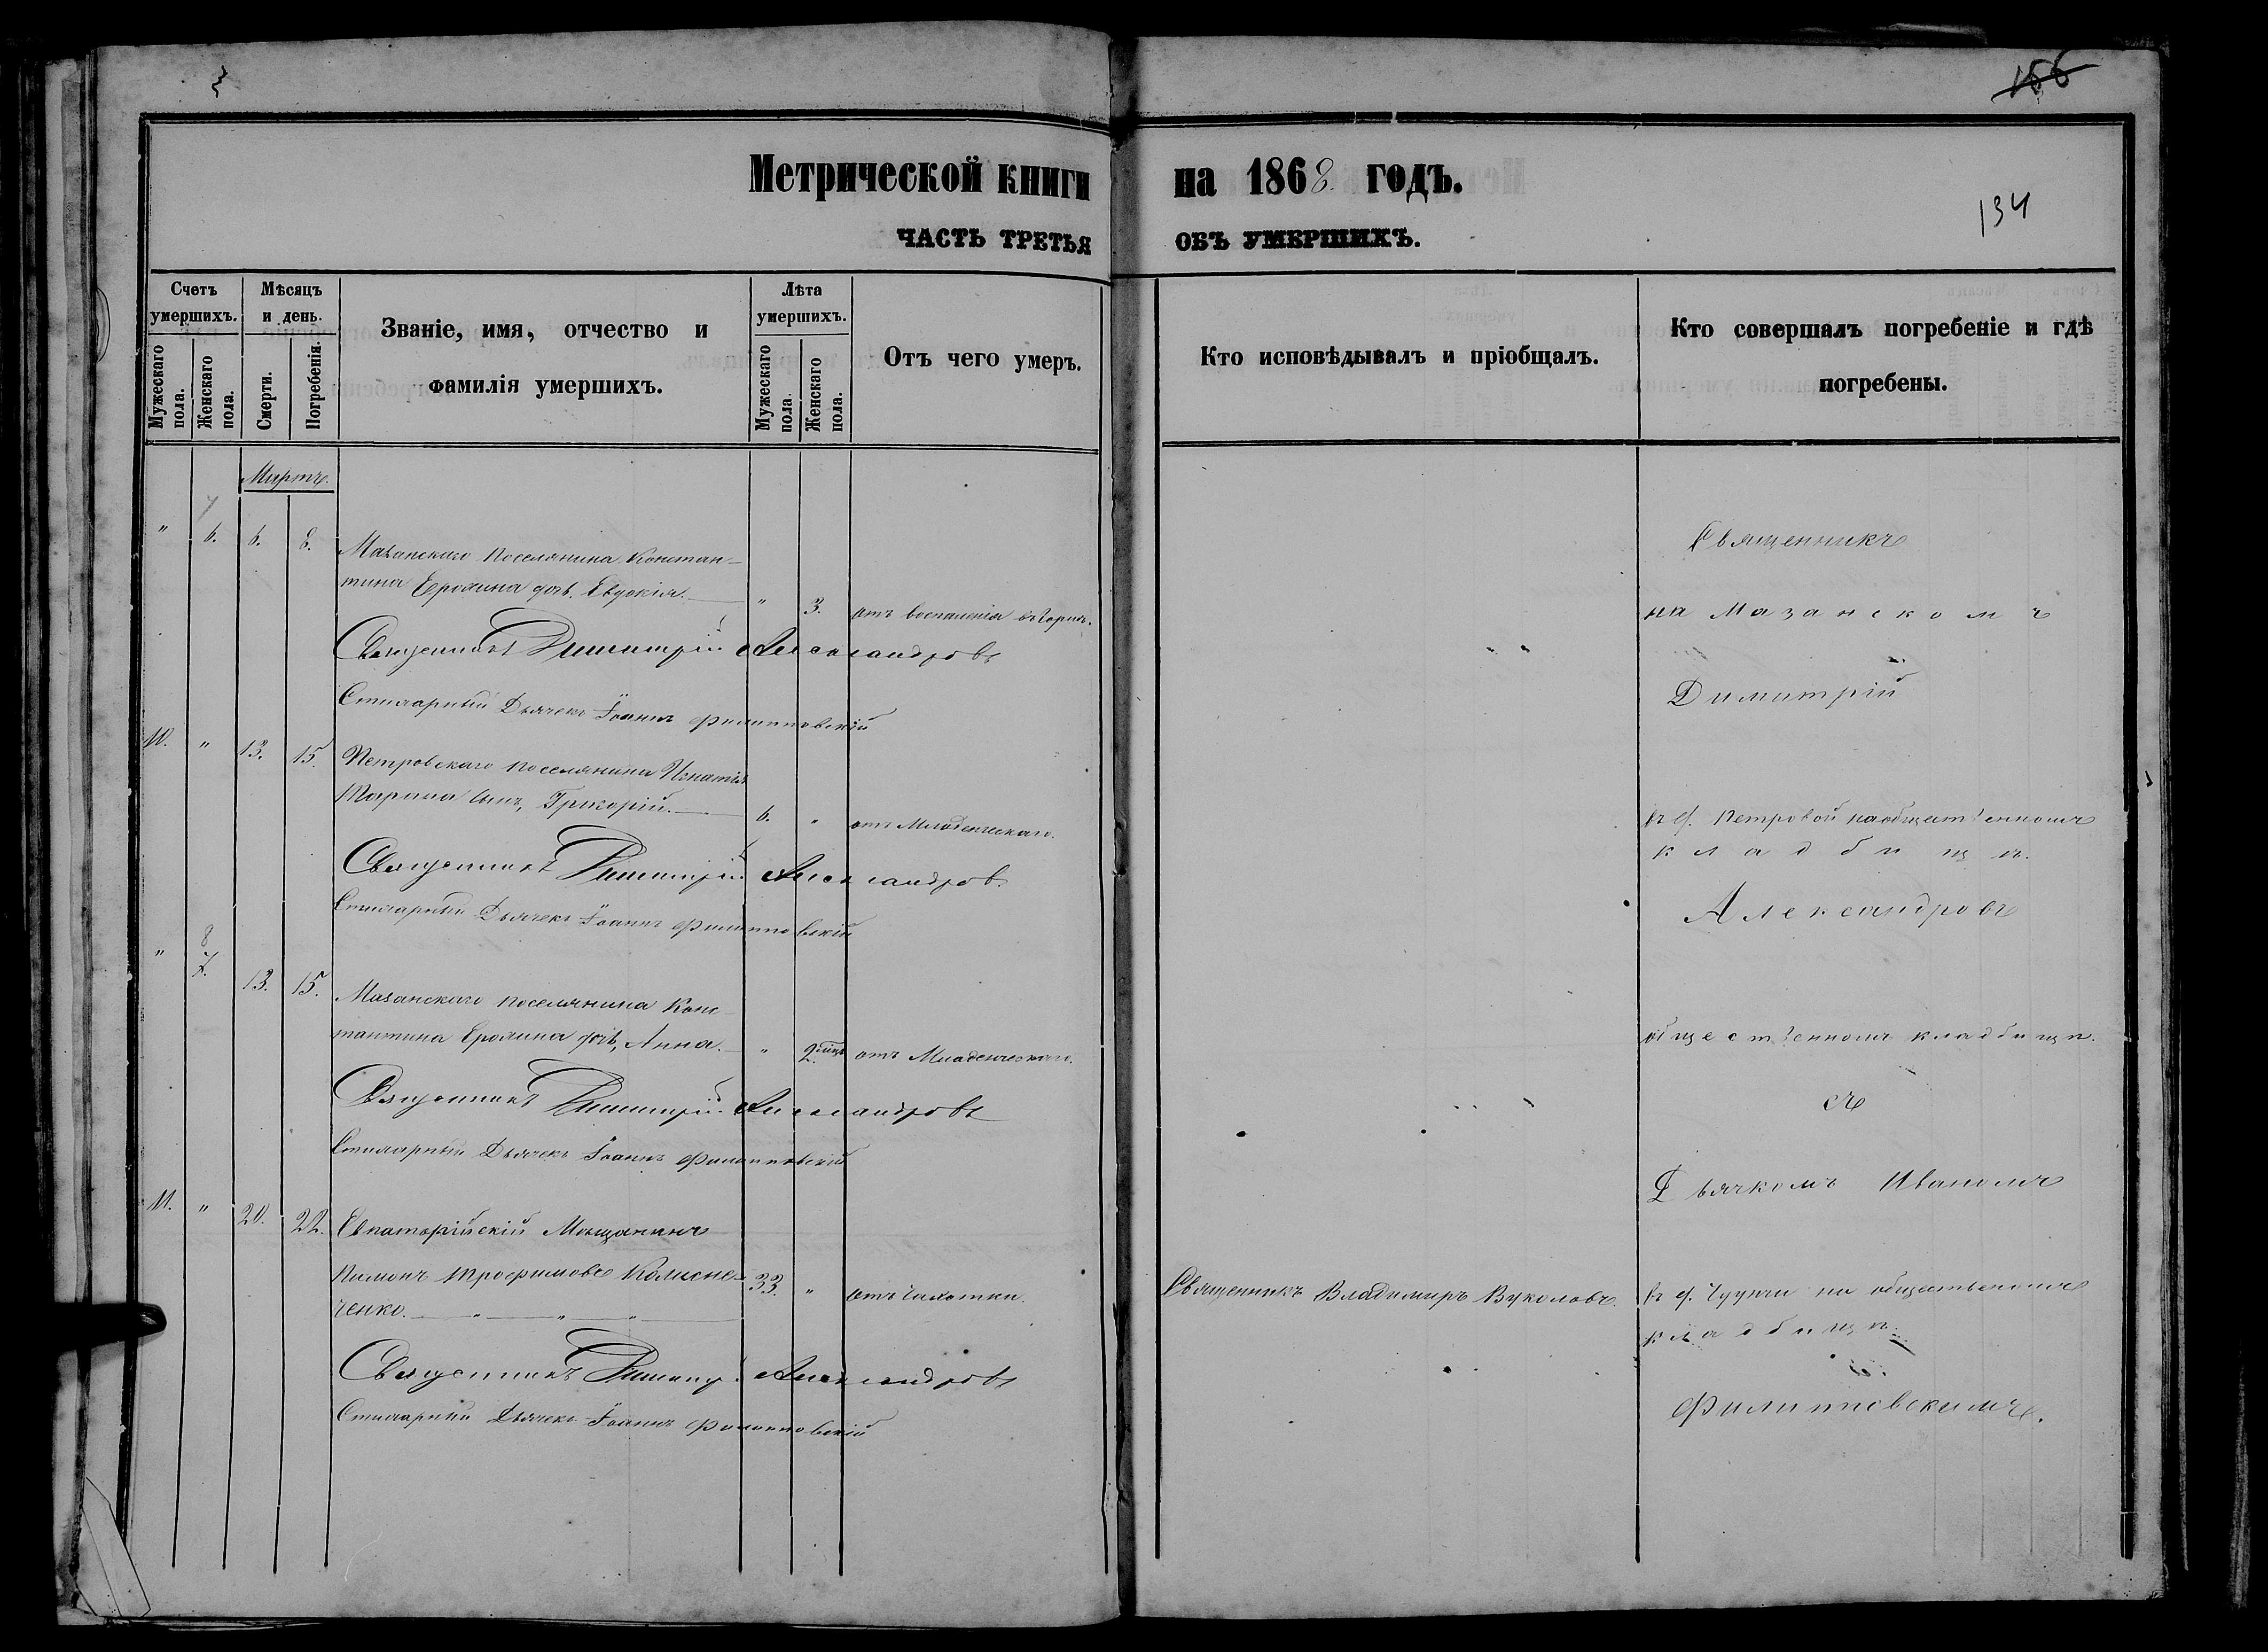 156
Метрической книги на 1868. годъ.
134
ЧАСТЬ ТРЕТЬЯ ОБЪ УМЕРШИХЪ.
Счетъ умершихъ.
Мужескаго пола.
Женскаго пола.
Мѣсяцъ и день.
Смерти.
Погребенія.
Званіе, имя, отчество и
фамилія умершихъ.
Лѣта умершихъ.
Мужескаго пола.
Женскаго пола.
Отъ чего умеръ.
Кто исповѣдывалъ и пріобщалъ.
Кто совершалъ погребеніе и гдѣ
погребены.
Мартъ.
7
" 6. 6. 8. Мазанскаго поселянина Констан-
тина Еромина дочь, Евдокія. " 3. отъ воспаленія въ горлѣ.
Священникъ Димитрій Александровъ
Стихарный Дьячекъ Іоаннъ Филипповскій
10. " 13. 15. Петровскаго поселянина Игнатія
Тарана сынъ, Григорій. 6. " отъ Младенческаго.
Священникъ Димитрій Александровъ
Стихарный Дьячекъ Іоаннъ Филипповскій
8
" 7. 13. 15. Мазанскаго поселянина Конс-
тантина Еромина дочь, Анна. " 2. отъ Младенческаго.
Священникъ Димитрій Александровъ
Стихарный Дьячекъ Іоаннъ Филипповскій
11. " 20. 22. Евпаторійскій Мѣщанинъ
Пименъ Трофимовъ Колисни-
ченко. 33. " отъ Чахотки.
Священникъ Димитрій Александровъ
Стихарный Дьячекъ Іоаннъ Филипповскій
Священникъ Владимиръ Вуколовъ.
Священникъ
на Мазанскомъ
Димитрій
въ с. Петровой на общественномъ
кладбищѣ.
Александровъ
общественномъ кладбищѣ.
съ
Дьячкомъ Иваномъ
въ с. на общественномъ
кладбищѣ.
Филипповскимъ.